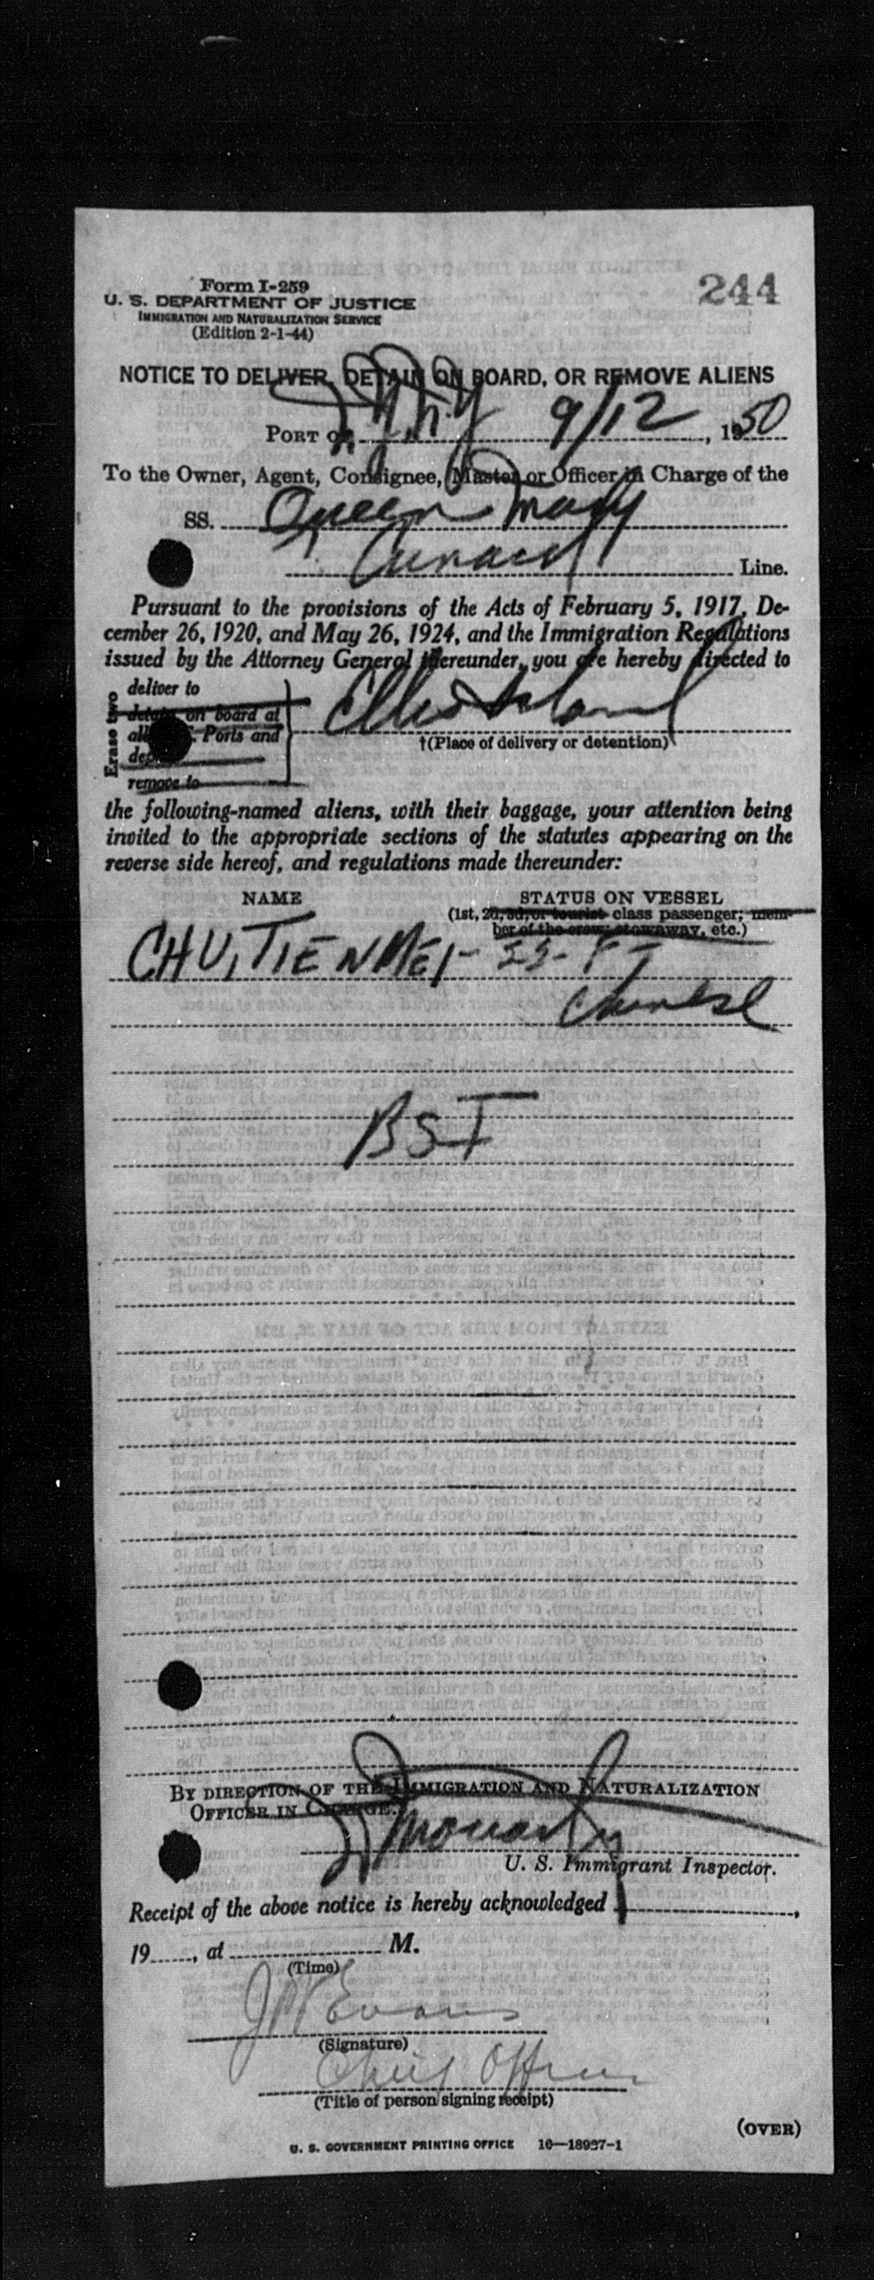 Form I-259
244
U. S. DEPARTMENT OF JUSTICE
IMMIGRATION AND NATURALIZATION SERVICE
(Edition 2-1-44)
NOTICE TO DELIVER, DETAIN ON BOARD, OR REMOVE ALIENS
PORT OF N.Y. 9/12, 1950
To the Owner, Agent, Consignee, Master or Officer in Charge of the
SS. Queen Mary
Cunard Line.
Pursuant to the provisions of the Acts of February 5, 1917, De-
cember 26, 1920, and May 26, 1924, and the Immigration Regulations
issued by the Attorney General thereunder, you are hereby directed to
Erase two
deliver to
detain on board at
all U. S. Ports and
deport
remove to
Ellis Island
†(Place of delivery or detention)
the following-named aliens, with their baggage, your attention being
invited to the appropriate sections of the statutes appearing on the
reverse side hereof, and regulations made thereunder:
NAME STATUS ON VESSEL
(1st, 2d, 3d, or tourist class passenger; mem-
ber of the crew, stowaway, etc.)
CHU, TIEN MEI -
Chinese
BSI
BY DIRECTION OF THE IMMIGRATION AND NATURALIZATION
OFFICER IN CHARGE.
U. S. Immigrant Inspector.
Receipt of the above notice is hereby acknowledged ,
19 , at M.
(Time)
Evans
(Signature)
Chief Officer
(Title of person signing receipt)
(OVER)
U. S. GOVERNMENT PRINTING OFFICE 16—18937-1